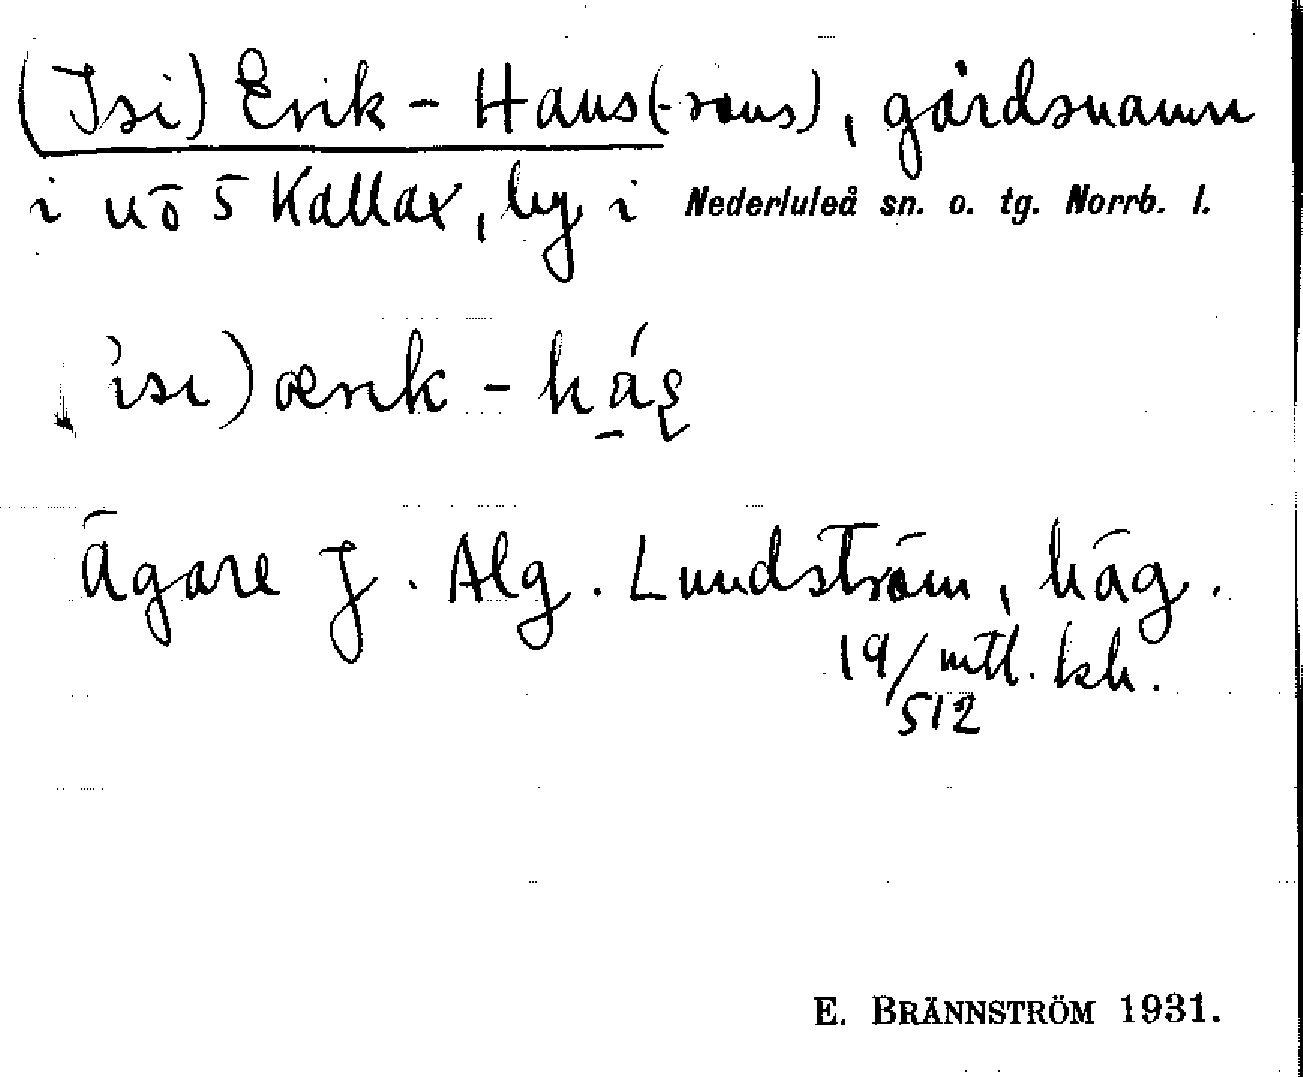 (Isi) Erik-Hans(-sons), gårdsnamn
i nö 5 Kallax, by i Nederluleå sn. o. tg. Norrb. l.
isi) ærik-háş
Ägare J. Alg. Lundström, häg.
19/512 mtl. kh.
E. BRÄNNSTRÖM 1931.